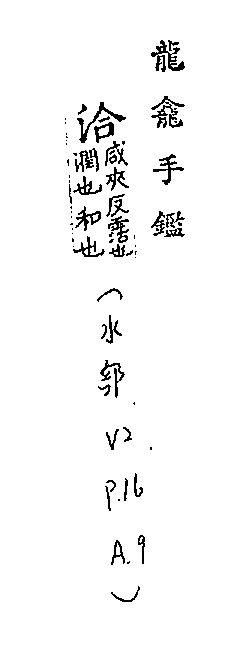 龍龕手鑑
洽咸夾反霑也
潤也和也
（水部
V2.
P.16
A.9
）